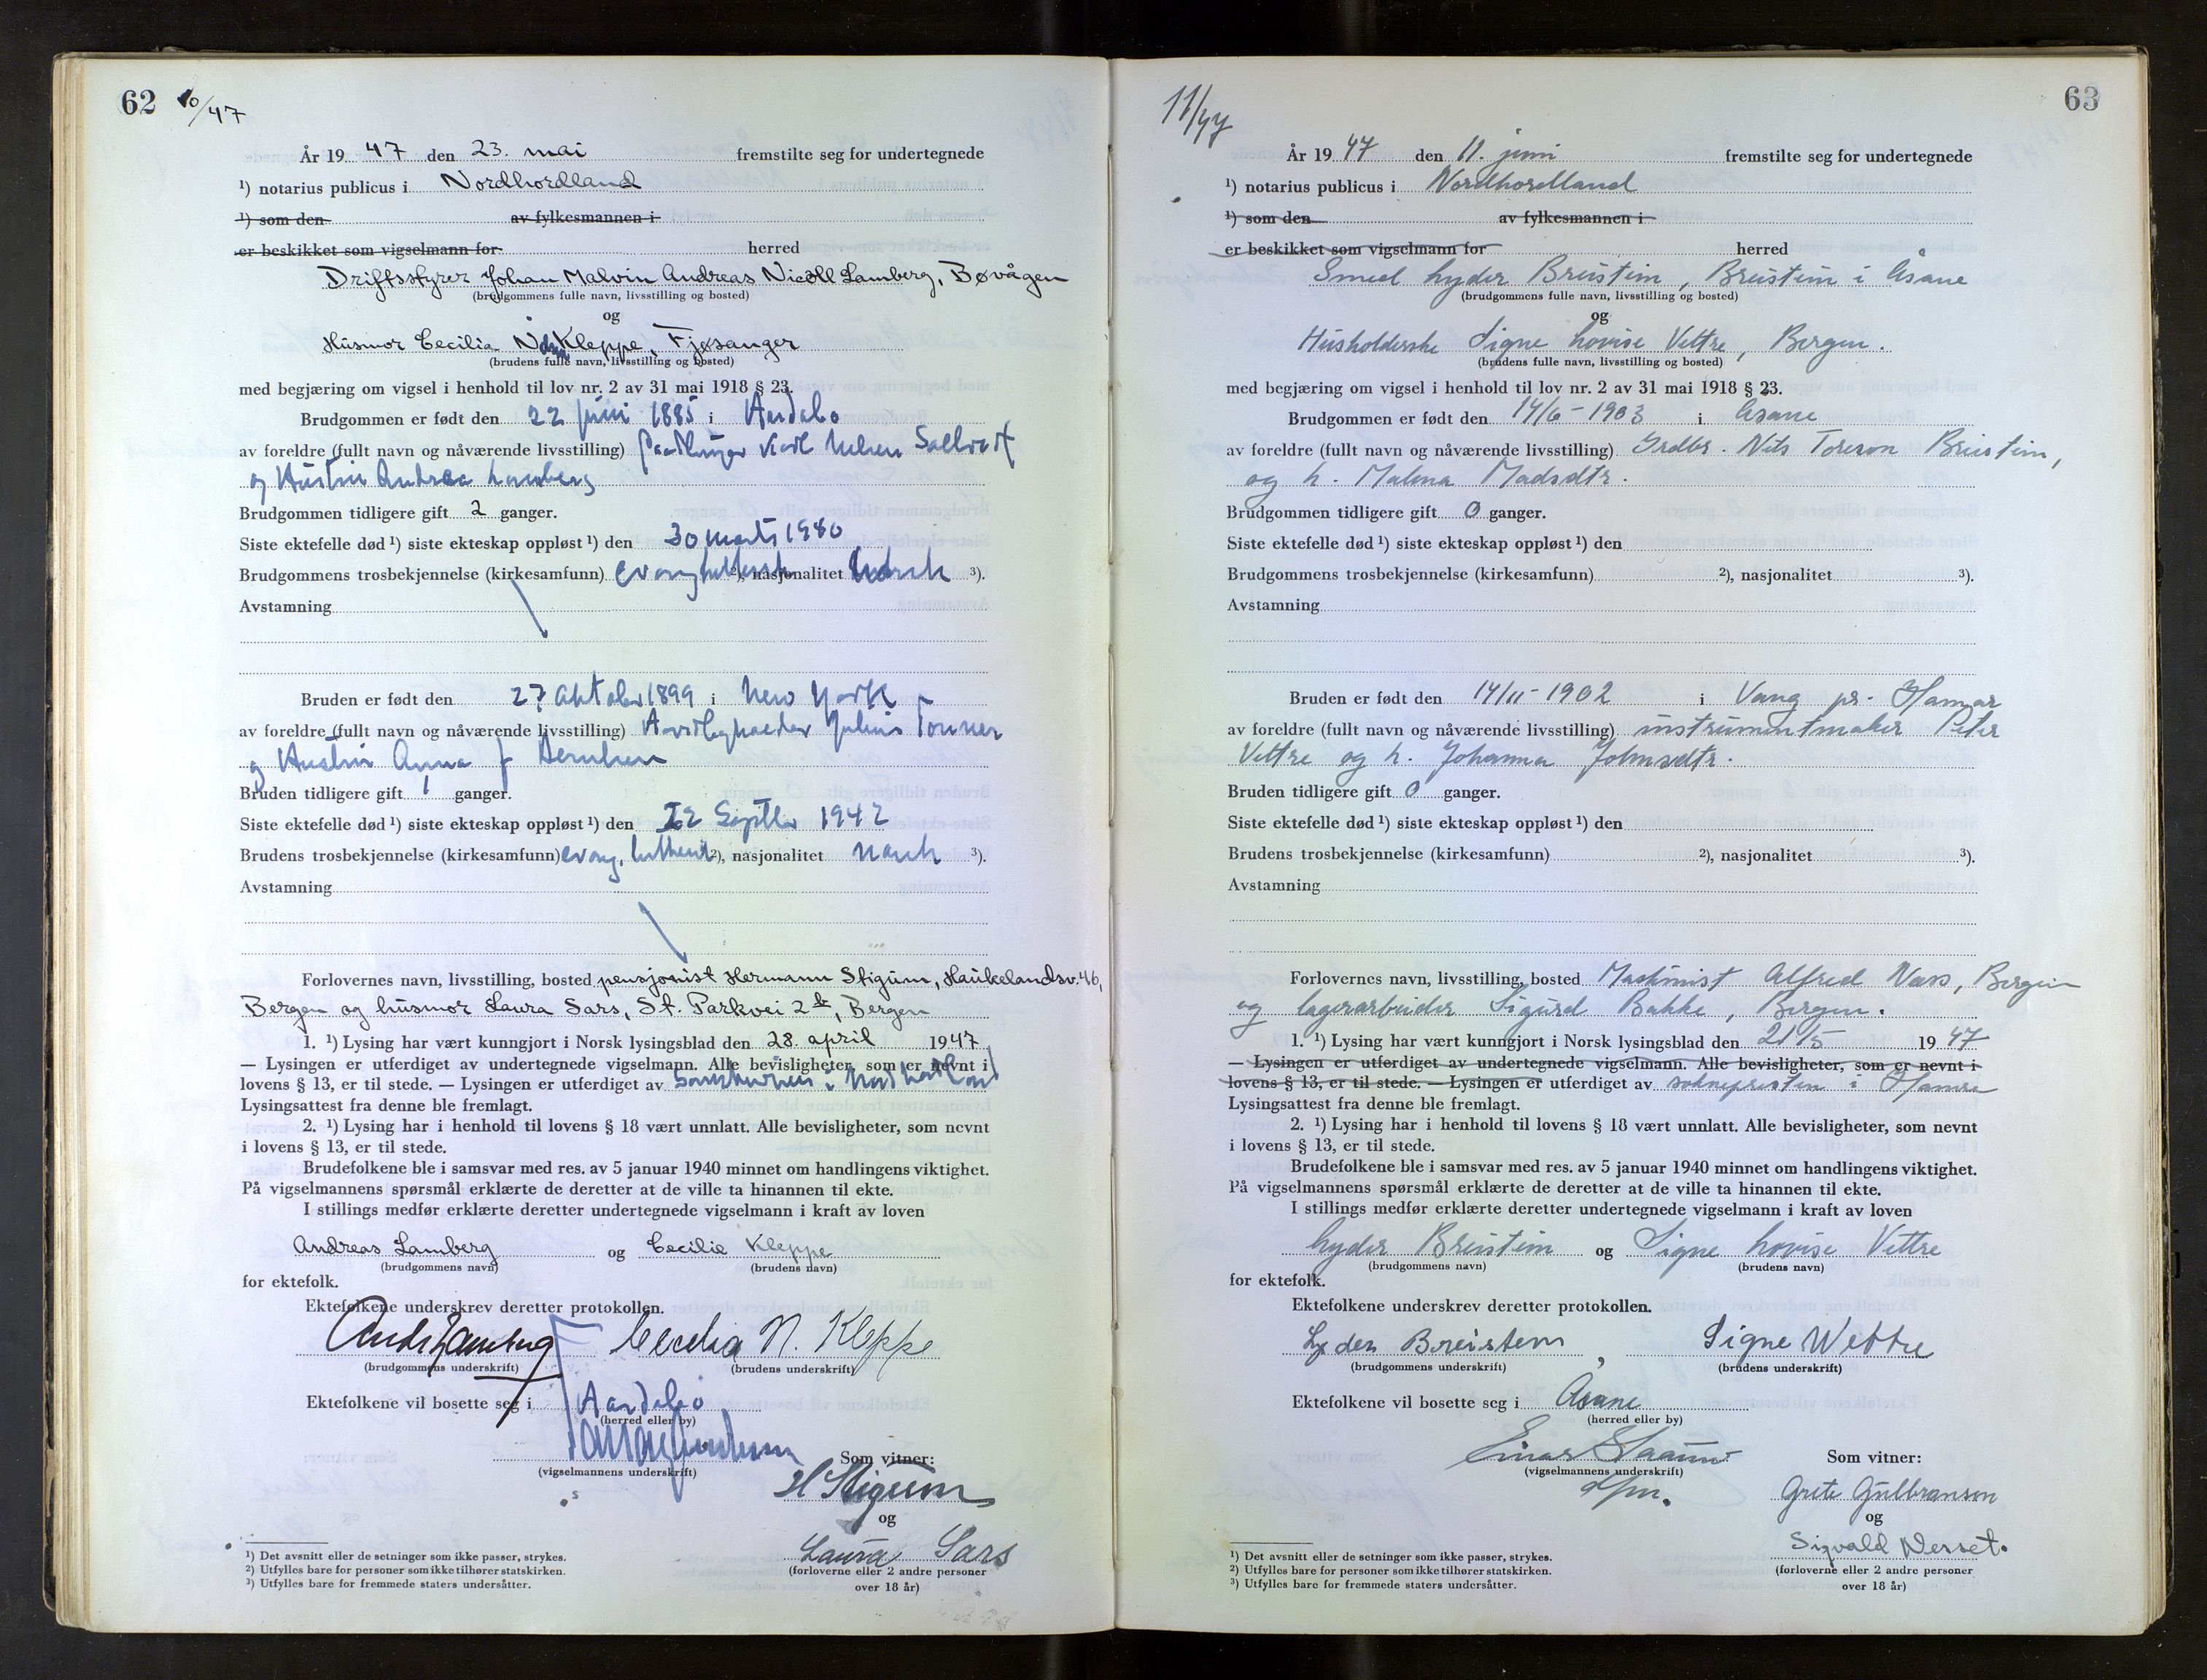 62 10/47
År 19 47 den 23. mai fremstilte seg for undertegnede
¹) notarius publicus i Nordhordland
¹) som den av fylkesmannen i
er beskikket som vigselmann for herred
Driftsstyrer Johan Malvin Andreas Nicoll Lamberg, Bøvågen
(brudgommens fulle navn, livsstilling og bosted)
og
Husmor Cecilia Kleppe, Fjøsanger
(brudens fulle navn, livsstilling og bosted)
med begjæring om vigsel i henhold til lov nr. 2 av 31 mai 1918 § 23.
Brudgommen er født den 22 juni 1885 i
av foreldre (fullt navn og nåværende livsstilling) Karl
og Hustru Andrea Lamberg
Brudgommen tidligere gift 2 ganger.
Siste ektefelle død ¹) siste ekteskap oppløst ¹) den 30 marts 1940
Brudgommens trosbekjennelse (kirkesamfunn) ²), nasjonalitet norsk ³).
Avstamning
Bruden er født den 27 oktober 1899 i New York
av foreldre (fullt navn og nåværende livsstilling) Julius Tonner
og Hustru Anna f
Bruden tidligere gift 1 ganger.
Siste ektefelle død ¹) siste ekteskap oppløst ¹) den 12 Septbr 1942
Brudens trosbekjennelse (kirkesamfunn) evang. luthersk ²), nasjonalitet norsk ³).
Avstamning
Forlovernes navn, livsstilling, bosted pensjonist Hermann Stigum, Haukelandsv. 46,
Bergen og husmor Laura Sars, St. Parkvei 2 b, Bergen
1. ¹) Lysing har vært kunngjort i Norsk lysingsblad den 28. april 1947
— Lysingen er utferdiget av undertegnede vigselmann. Alle bevisligheter, som er nevnt i
lovens § 13, er til stede. — Lysingen er utferdiget av i Nordhordland
Lysingsattest fra denne ble fremlagt.
2. ¹) Lysing har i henhold til lovens § 18 vært unnlatt. Alle bevisligheter, som nevnt
i lovens § 13, er til stede.
Brudefolkene ble i samsvar med res. av 5 januar 1940 minnet om handlingens viktighet.
På vigselmannens spørsmål erklærte de deretter at de ville ta hinannen til ekte.
I stillings medfør erklærte deretter undertegnede vigselmann i kraft av loven
Andreas Lamberg og Cecilie Kleppe
(brudgommens navn) (brudens navn)
for ektefolk.
Ektefolkene underskrev deretter protokollen.
Andr Lamberg Cecilia N. Kleppe
(brudgommens underskrift) (brudens underskrift)
Ektefolkene vil bosette seg i
(herred eller by)
(vigselmannens underskrift)
Som vitner:
H Stigum
og
Laura Sars
(forloverne eller 2 andre personer
over 18 år)
¹) Det avsnitt eller de setninger som ikke passer, strykes.
²) Utfylles bare for personer som ikke tilhører statskirken.
³) Utfylles bare for fremmede staters undersåtter.
11/47 63
År 19 47 den 11. juni fremstilte seg for undertegnede
¹) notarius publicus i Nordhordland
¹) som den av fylkesmannen i
er beskikket som vigselmann for herred
Smed Lyder Breistein, Breistein i Åsane
(brudgommens fulle navn, livsstilling og bosted)
og
Husholderske Signe Lovise Vettre, Bergen.
(brudens fulle navn, livsstilling og bosted)
med begjæring om vigsel i henhold til lov nr. 2 av 31 mai 1918 § 23.
Brudgommen er født den 14/6 - 1903 i Åsane
av foreldre (fullt navn og nåværende livsstilling) Grdbr. Nils Toreson Breistein,
og h. Malena Madsdtr.
Brudgommen tidligere gift 0 ganger.
Siste ektefelle død ¹) siste ekteskap oppløst ¹) den
Brudgommens trosbekjennelse (kirkesamfunn) ²), nasjonalitet ³).
Avstamning
Bruden er født den 14/11 - 1902 i Vang pr. Hamar
av foreldre (fullt navn og nåværende livsstilling) instrumentmaker Peter
Vettre og h. Johanna Johnsdtr.
Bruden tidligere gift 0 ganger.
Siste ektefelle død ¹) siste ekteskap oppløst ¹) den
Brudens trosbekjennelse (kirkesamfunn) ²), nasjonalitet ³).
Avstamning
Forlovernes navn, livsstilling, bosted Maskinist Alfred Næss, Bergen
og lagerarbeider Sigurd Bakke, Bergen.
1. ¹) Lysing har vært kunngjort i Norsk lysingsblad den 21/5 19 47
— Lysingen er utferdiget av undertegnede vigselmann. Alle bevisligheter, som er nevnt i
lovens § 13, er til stede. — Lysingen er utferdiget av soknepresten i Hamre
Lysingsattest fra denne ble fremlagt.
2. ¹) Lysing har i henhold til lovens § 18 vært unnlatt. Alle bevisligheter, som nevnt
i lovens § 13, er til stede.
Brudefolkene ble i samsvar med res. av 5 januar 1940 minnet om handlingens viktighet.
På vigselmannens spørsmål erklærte de deretter at de ville ta hinannen til ekte.
I stillings medfør erklærte deretter undertegnede vigselmann i kraft av loven
Lyder Breistein og Signe Lovise Vettre
(brudgommens navn) (brudens navn)
for ektefolk.
Ektefolkene underskrev deretter protokollen.
Lyder Breistein, Signe Wettre
(brudgommens underskrift) (brudens underskrift)
Ektefolkene vil bosette seg i Åsane
(herred eller by)
Einar
(vigselmannens underskrift)
Som vitner:
Grete Gulbranson
og
Sigvald Nesset.
(forloverne eller 2 andre personer
over 18 år)
¹) Det avsnitt eller de setninger som ikke passer, strykes.
²) Utfylles bare for personer som ikke tilhører statskirken.
³) Utfylles bare for fremmede staters undersåtter.